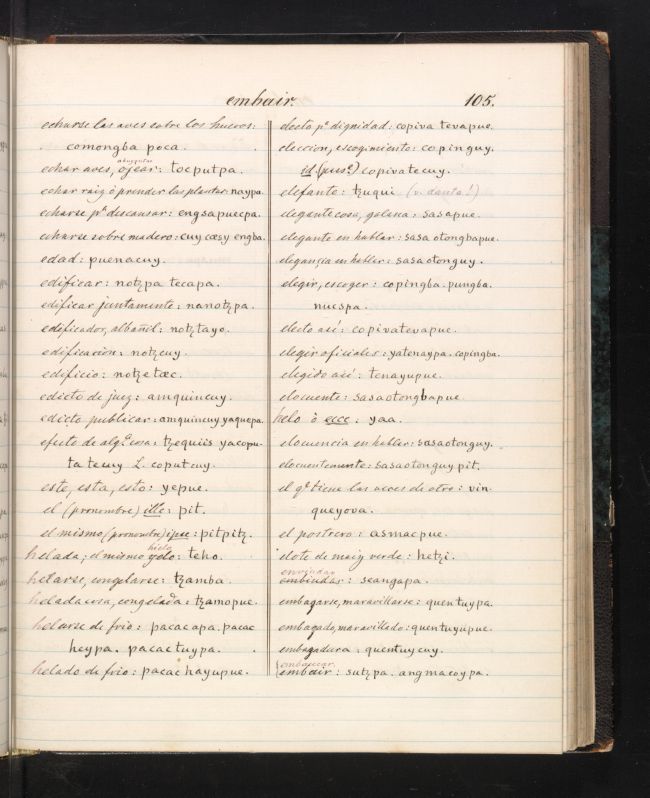 embair.
105.
echarse las aves sobre los huevos:
comongba poca.
ahuyentar
echar aves, ojear: tocputpa.
echar raiz ò prender las plantas: naypa.
echarse pª descansar: engsapuecpa.
echarse sobre madero: cuy cæsy engba.
edad: puenacuy.
edificar: notzpa tecapa.
edificar juntamente: nanotzpa.
edificador, albañil: notztayo.
edificacion: notzcuy.
edificio: notze tæc.
edicto de juez: amquincuy.
edicto publicar: amquincuy yaquepa.
efecto de algª cosa: tzequiis yacopu-
ta tecuy L. coputcuy.
este, esta, esto: yepue.
el (pronombre) ille: pit.
el mismo (pronombre) ipse: pitpitz.
hielo
helada; el mismo yelo: teho.
helarse, congelarse: tzamba.
helada cosa, congelada: tzamopue.
helarse de frio: pacac apa. pacac
heypa. pacac tuypa.
helado de frio: pacac hayupue.
electo pª dignidad: copiva tevapue.
eleccion, escogimiento: copinguy.
id (pasª) copivatecuy.
elefante: tzuqui (v. danta!)
elegante cosa, galana: sasapue.
elegante en hablar: sasa otongbapue.
elegancia en hablar: sasaotonguy.
elegir, escoger: copingba. pungba.
nucspa.
electo asi: copivatevapue.
elegir oficiales: yatenaypa. copingba.
elegido asi: tenayupue.
elocuente: sasaotongbapue.
helo ò ecce: yaa.
elocuencia en hablar: sasaotonguy.
elocuentemente: sasaotonguy pit.
el qº tiene las veces de otro: vin
queyova.
el postrero: asmacpue.
elote de maiz verde: hetzi.
enviudar
embiudar: seangapa.
embazarse, maravillarse: quentuypa.
embazado, maravillado: quentuyupue.
embazadura: quentuycuy.
embaucar
embair: sutzpa. angmacoypa.